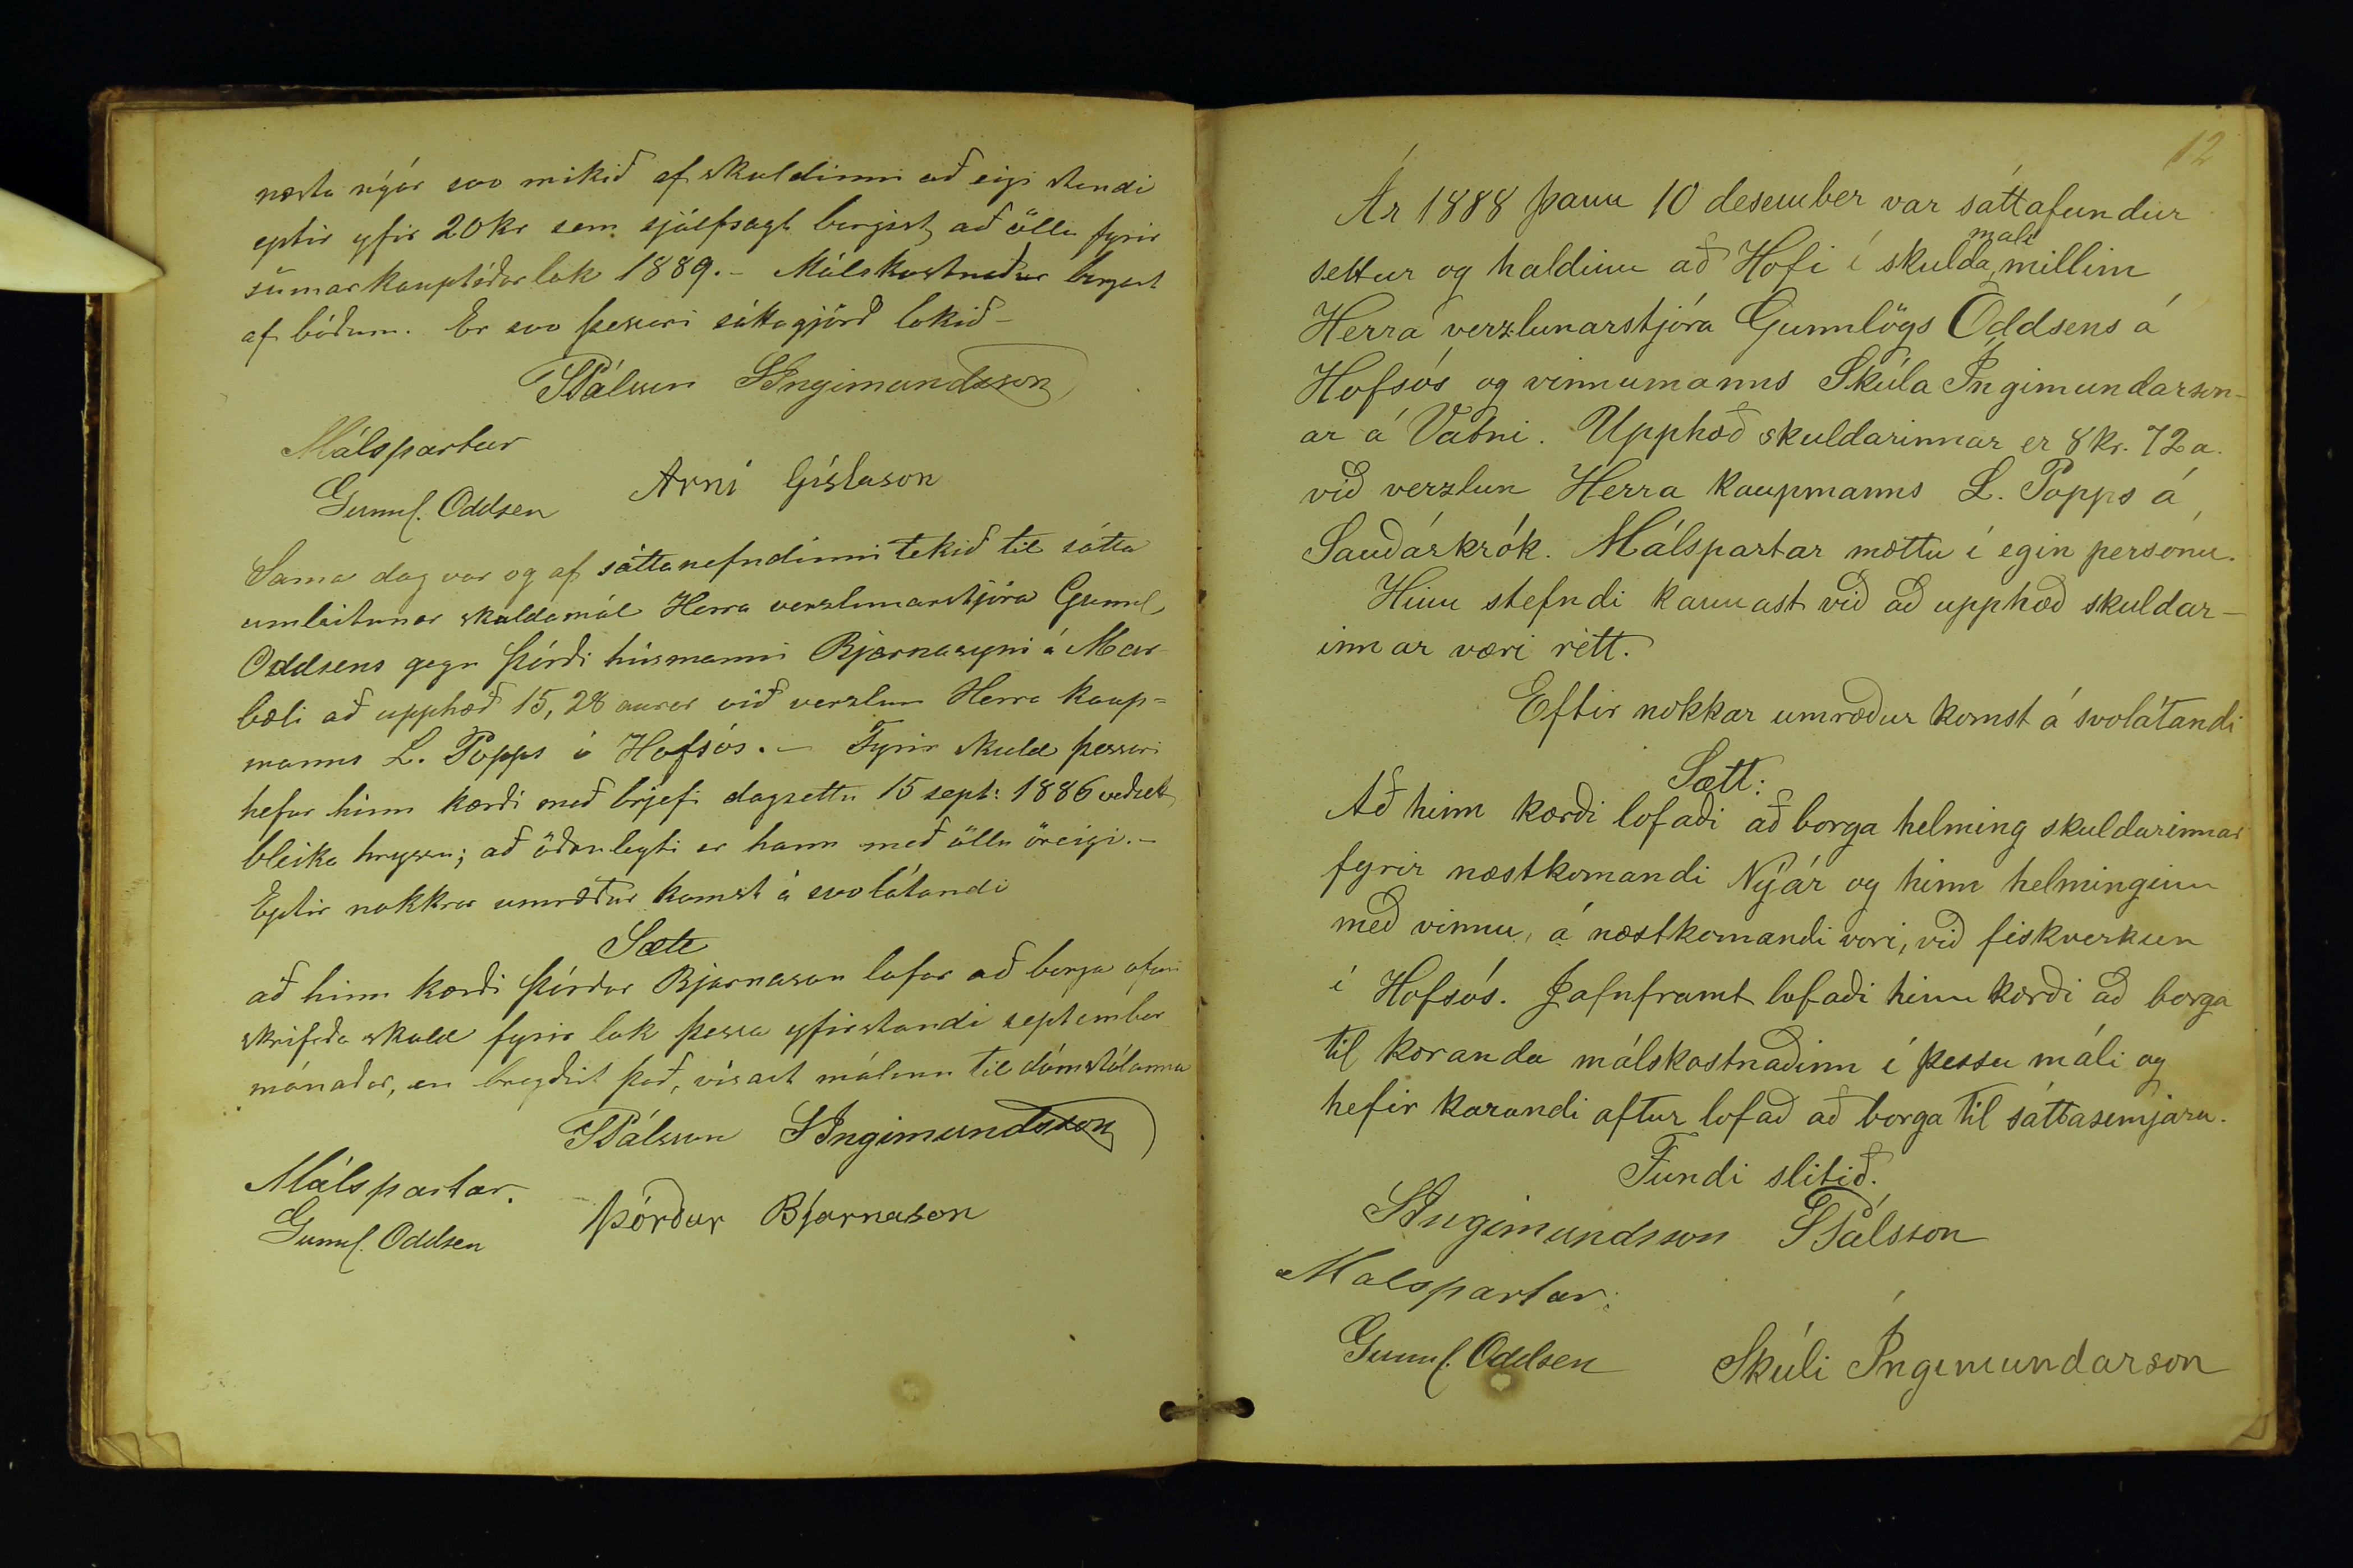 næsta nýár svo mikið af skuldinni að eigi standi
eptir yfir 20 kr sem sjálfsagt borgist að öllu fyrir
sumarkauptíðarlok 1889. - Málskostnaður borgast
af báðum. Er svo þessari sáttagjörð lokið -
SPálsson SIngimundsson
Málspartar
Gunnl. Oddsen Arni Gíslason
Sama dag var og af sáttanefndinni tekið til sátta
umleitunar skuldamál Herra verzlunarstjóra Gunnl.
Oddsens gegn Þórði húsmanni Bjarnasyni á Mar-
bæli að upphæð 15,28 aurar við verzlun Herra kaup=
manns L. Popps á Hofsós. - Fyrir skuld þessari
hefur hinn kærði með brjefi dagsettu 15 sept: 1886 veðsett
bleika hryssu; að öðruleyti er hann með öllu öreigi. -
Eptir nokkrar umræður komst á svolátandi
Sætt
að hinn kærði Þórður Bjarnason lofar að borga ofan
skrifaða skuld fyrir lok þessa yfirstandi september
mánaðar, en bregðist það, vísast málinu til dómstólanna
SPálsson SIngimundsson
Málspartar.
Gunnl. Oddsen Þórður Bjarnason
12
Ár 1888 þann 10 desember var sáttafundur
settur og haldinn að Hofi í skuldamáli millim
Herra verzlunarstjóra Gunnlögs Oddsens á
Hofsós og vinnumanns Skúla Íngimundarson-
ar á Vatni. Upphæð skuldarinnar er 8 kr. 72 a.
við verzlun Herra kaupmanns L. Popps á
Sauðárkrók. Málspartar mættu í egin persónu.
Hinn stefndi kannast við að upphæð skuldar-
innar væri rétt.
Eftir nokkar umræður komst á svolátandi
Sætt:
Að hinn kærði lofaði að borga helming skuldarinnar
fyrir næstkomandi Nýár og hinn helminginn
með vinnu, á næstkomandi vori, við fiskverkun
í Hofsós. Jafnframt lofaði hinn kærði að borga
til kæranda málskostnaðinn í þessu máli og
hefir kærandi aftur lofað að borga til sáttasemjara.
Fundi slitið.
SIngimundsson SPálsson
Malspartar:
Gunnl. Oddsen Skúli Íngimundarson